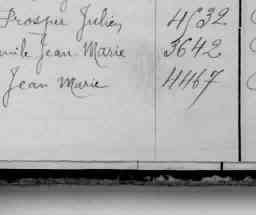 Prosper Julien 4532
Emile Jean Marie 3642
Jean Marie 4467